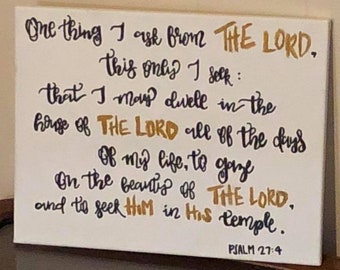 One thing I ask from THE LORD,
this only I seek:
that I may dwell in the
house of THE LORD all of the days
Of my life, to gaze
On the beauty of THE LORD,
and to seek HIM in HIS temple.
PSALM 27:4